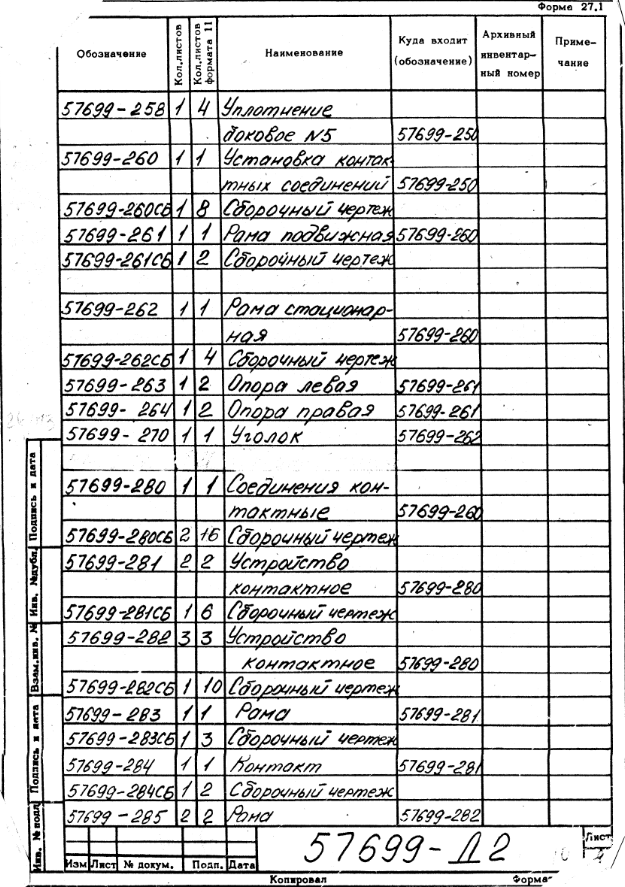 Форма 27.1
Обозначение Кол.листов Кол.листов формата 11 Наименование Куда входит (обозначение) Архивный инвентарный номер Примечание
57699-258 1 4 Уплотнение
боковое №5 57699-250
57699-260 1 1 Установка контак
тных соединений 57699-250
57699-260СБ 1 8 Сборочный чертеж
57699-261 1 1 Рама подвижная 57699-260
57699-261СБ 1 2 Сборочный чертеж
57699-262 1 1 Рама стационар-
ная 57699-260
57699-262СБ 1 4 Сборочный чертеж
57699-263 1 2 Опора левая 57699-261
57699-264 1 2 Опора правая 57699-261
57699-270 1 1 Уголок 57699-262
57699-280 1 1 Соединения кон-
тактные 57699-260
57699-280СБ 2 16 Сборочный чертеж
57699-281 2 2 Устройство
контактное 57699-280
57699-281СБ 1 6 Сборочный чертеж
57699-282 3 3 Устройство
контактное 57699-280
57699-282СБ 1 10 Сборочный чертеж
57699-283 1 1 Рама 57699-281
57699-283СБ 1 3 Сборочный чертеж
57699-284 1 1 Контакт 57699-281
57699-284СБ 1 2 Сборочный чертеж
57699-285 2 2 Рама 57699-282
Подпись и дата
Инв. №дубл.
Взам.инв. №
Подпись и дата
Инв. № подл
57699-Д2
Лист
Изм Лист № докум. Подп. Дата
Копировал Форма